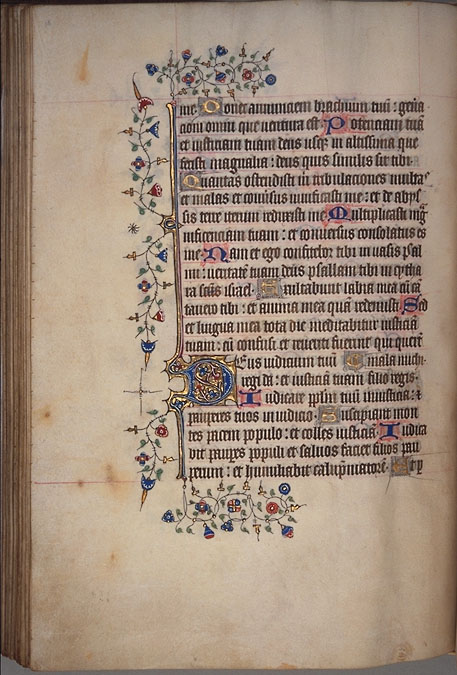 me. Donec annunciem brachium tuū: genera
cioni omni que ventura est. Potenciam tuā
et iusticiam tuam deus usqꝫ in altissima que
fecisti magnalia: deus quis similis sit tibi.
Quantas ostendisti m̄ tribulaciones multas
et malas et cōversus vivificasti me: et de abys
sis terre iterum reduxisti me. Multiplicasti mag
nificenciam tuam: et conversus consolatus es
me. Nam et ego confitebor tibi in vasis psal
mi: veritatē tuam deus psallam tibi in cytha
ra scūs israel. Exultabunt labia mea cū cā
tavero tibi: et anima mea quā redemisti. Sed
et lingua mea tota die meditabitur iusticiā
tuam: cū confusi et reveriti fuerint qui querūt
Deus iudicium tuū mala michi.
regi da: et iusticiā tuam filio regis.
Iudicare pplm tuū in iusticia: et
pauperes tuos in iudicio. Suscipiant mon
tes pacem populo: et colles iusticiā. Iudica
bit paupes populi et salvos faciet filios pau
perum: et humiliabit calūpniatorē. Et p